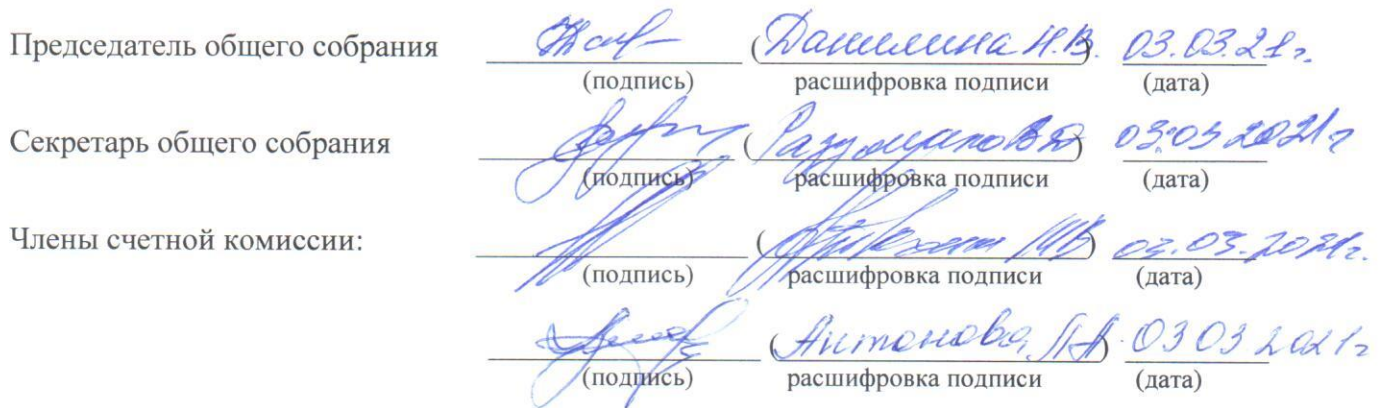 Председатель общего собрания (Данилина Н.В.) 03.03.21г.
(подпись) расшифровка подписи (дата)
Секретарь общего собрания ( ) 03.03 2021г
(подпись) расшифровка подписи (дата)
Члены счетной комиссии: ( ) 03.03.2021г.
(подпись) расшифровка подписи (дата)
(Антонова Л.А) 03 03 2021г
(подпись) расшифровка подписи (дата)